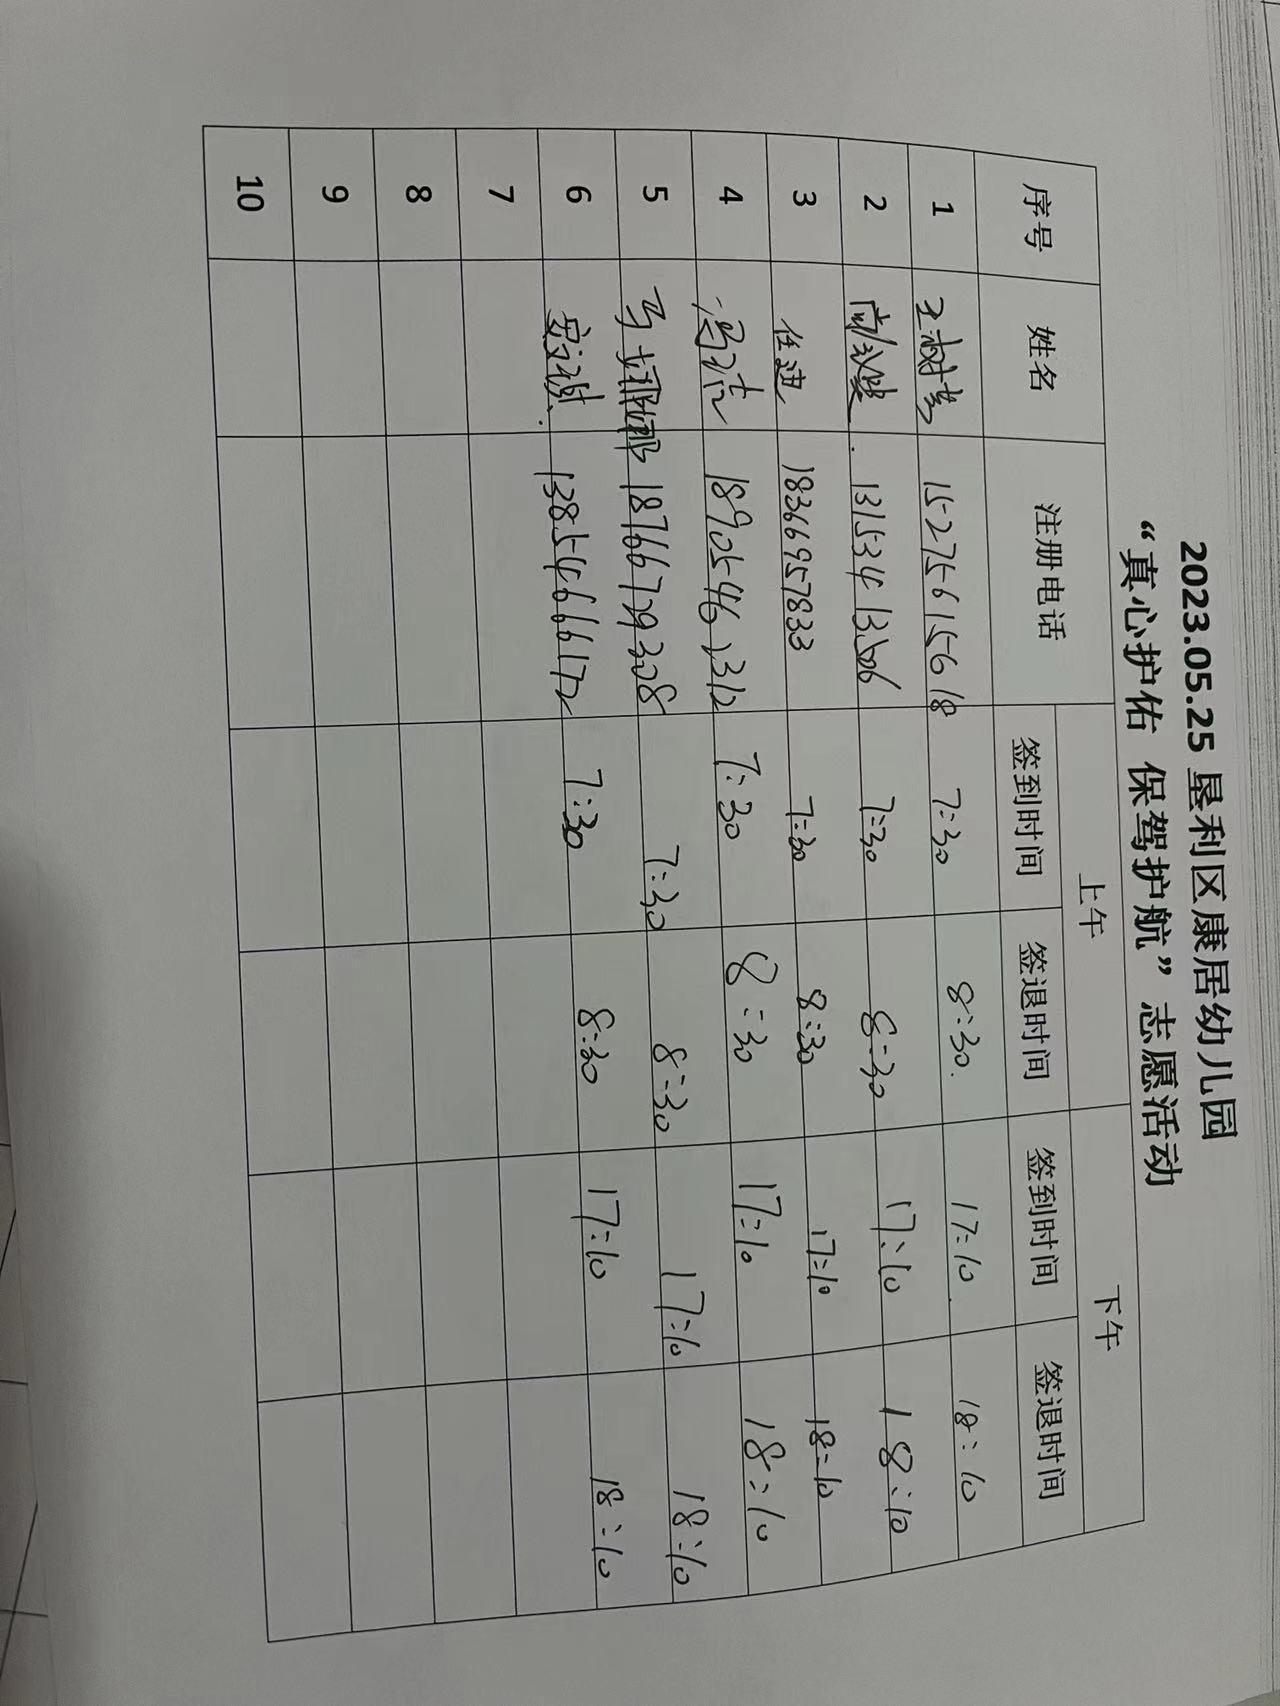 2023.05.25 垦利区康居幼儿园
“真心护佑 保驾护航”志愿活动
序号 姓名 注册电话 上午 下午
签到时间 签退时间 签到时间 签退时间
1 王树芳 15275615618 7:30 8:30. 17:10. 18:10
2 13153413506 7:30 8:30 17:10 18:10
3 任进 18366957833 7:30 8:30 17:10 18:10
4 冯洁 7:30 8:30 17:10 18:10
5 马娜娜 18766729308 7:30 8:30 17:10 18:10
6 13854666172 7:30 8:30 17:10 18:10
7
8
9
10